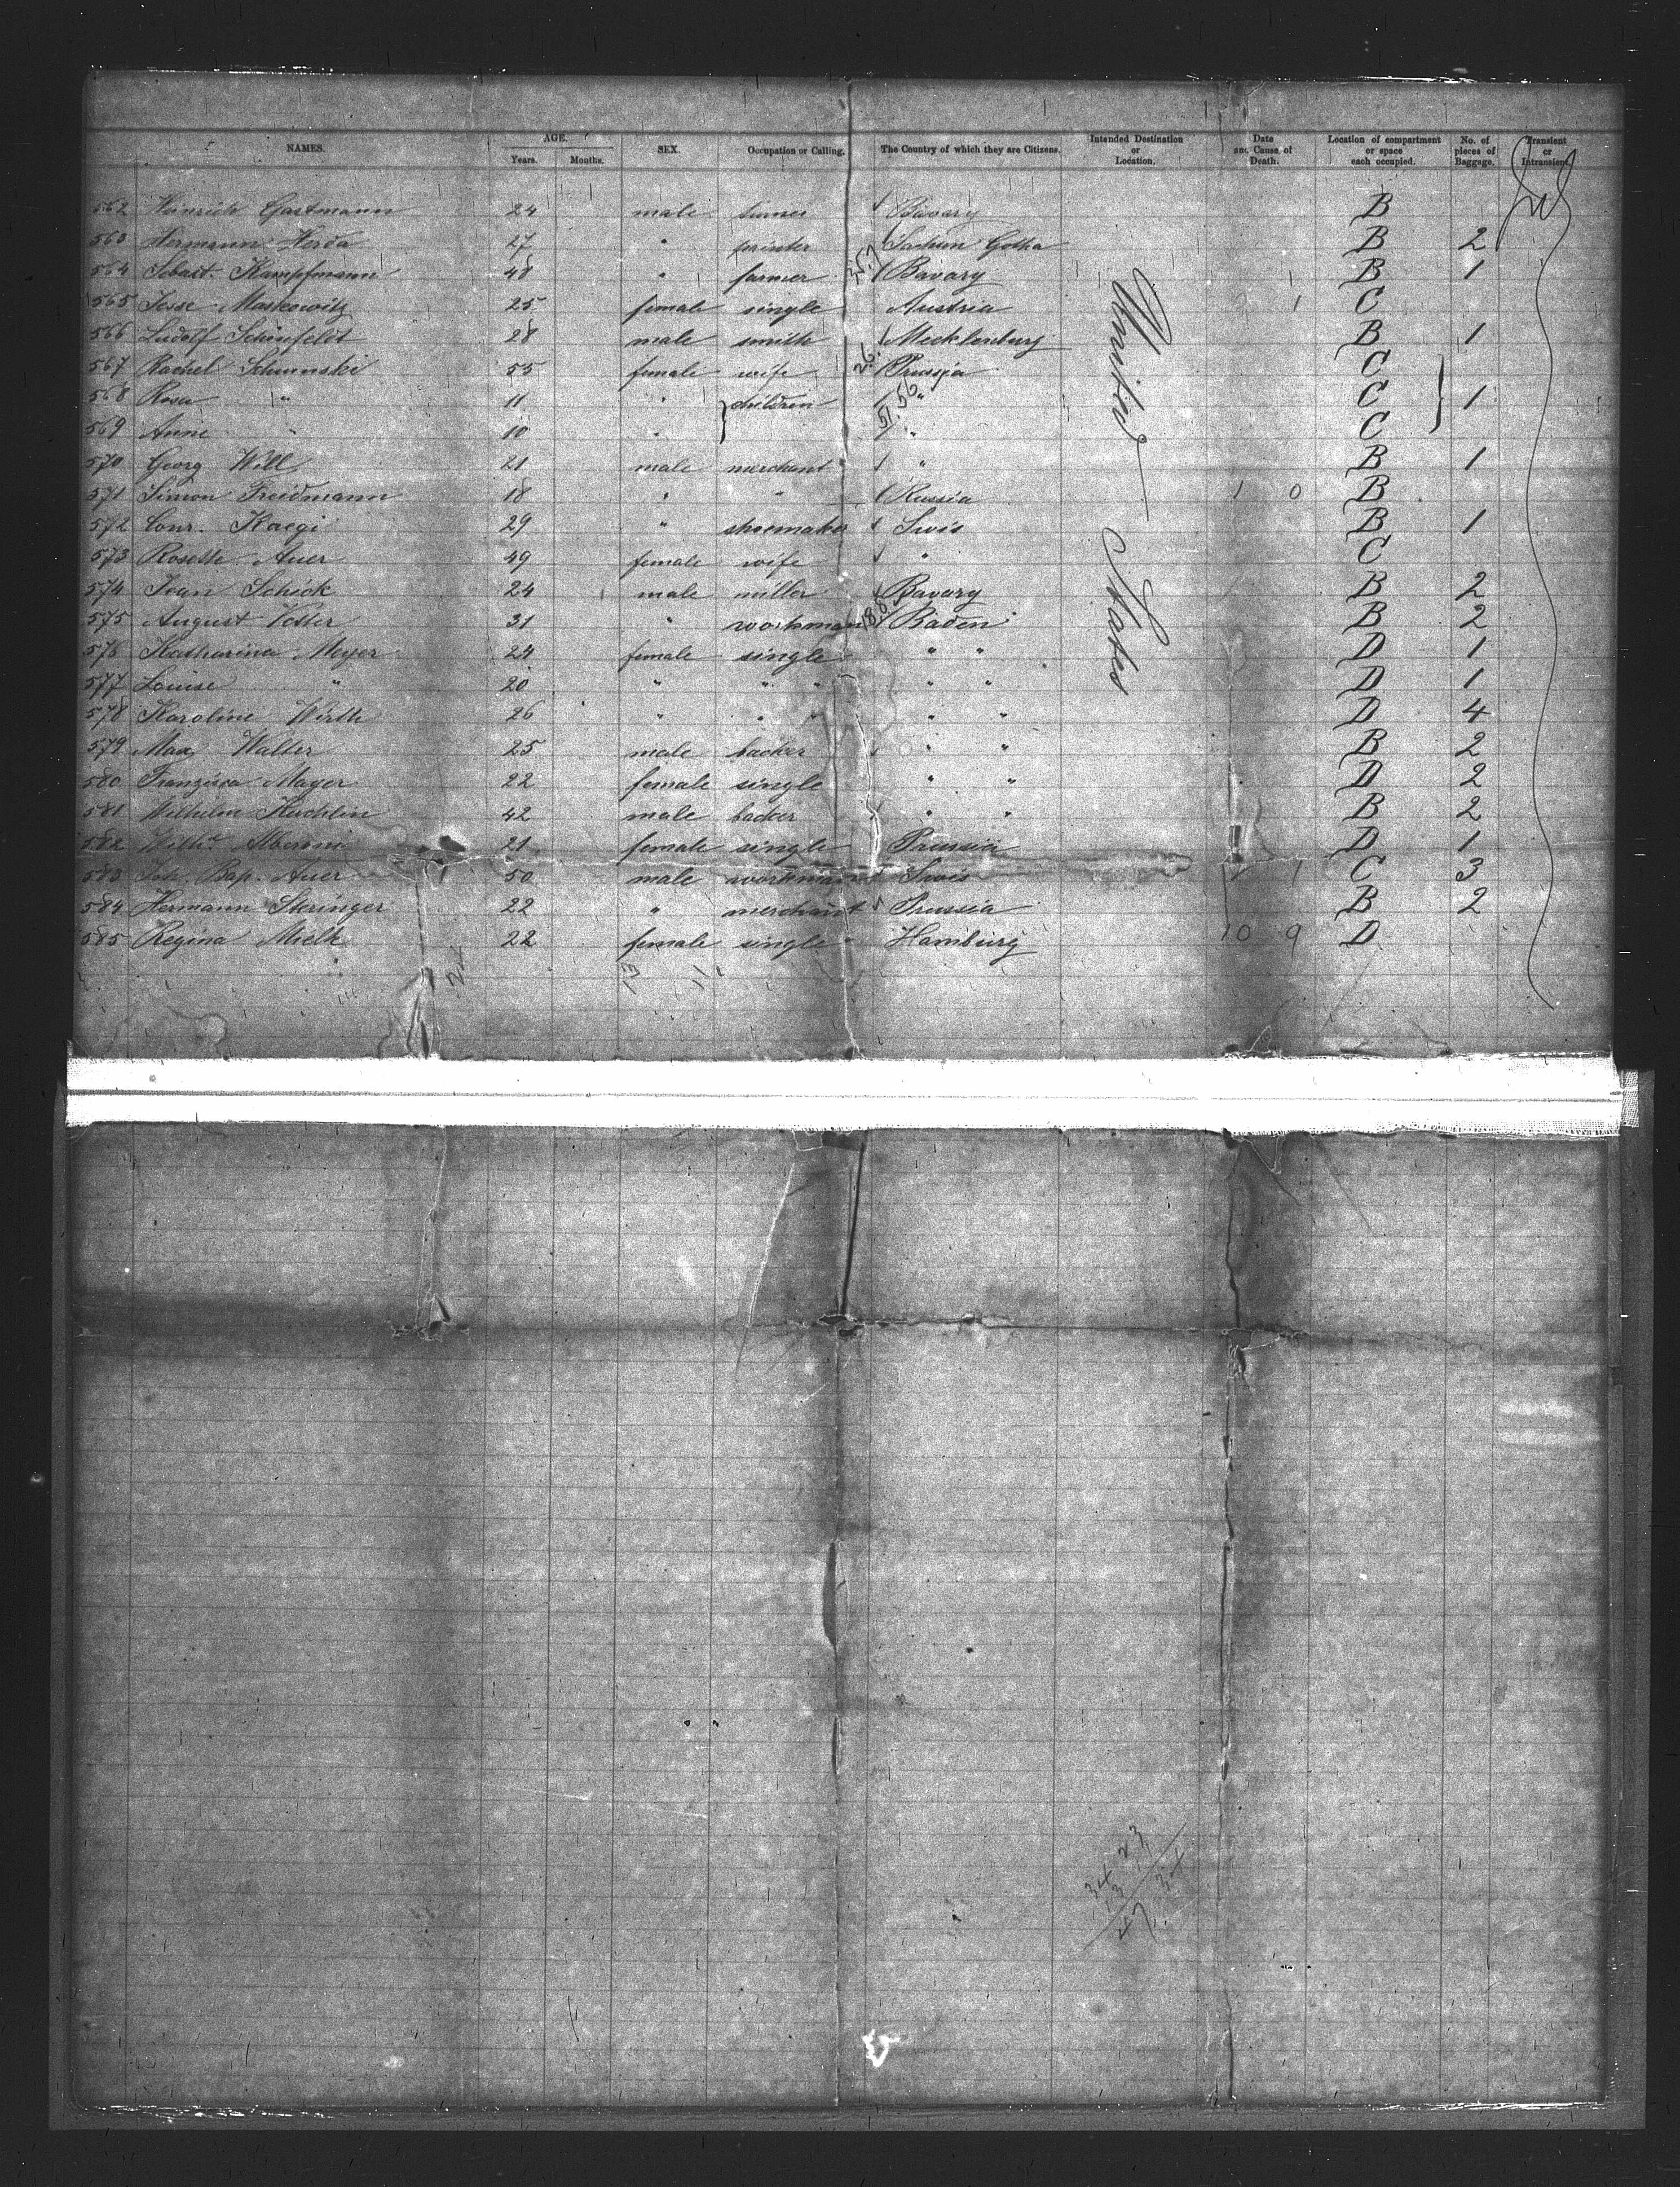 NAMES. AGE. Years. Months. SEX. Occupation or Calling. The Country of which they are Citizens. Intended Destination or Location. Date and Cause of Death. Location of compartment or space each occupied. No. of pieces of Baggage. Transient or Intransient
562 Heinrich Gastmann 24 male Bavary B
563 Hermann Herda 27 " printer Sachsen Gotha B 2
564 Sebast. Kampfmann 48 " farmer Bavary B 1
565 Moskowitz 25 female single Austria C
566 Ludolf Schönfeldt 28 male smith Mecklenburg B 1
567 Rachel 55 female wife Prussia C
568 Rosa " 11 " children " C 1
569 Anne " 10 " " C
570 Georg Will 21 male merchant " B 1
571 Simon Freidmann 18 " " Russia 1 0 B
572 Conr. Kaegi 29 " shoemaker Swis B 1
573 Rosette Auer 49 female wife " C
574 Schick 24 male miller Bavary B 2
575 August 31 " workman Baden B 2
576 Katharina Meyer 24 female single " " D 1
577 Louise " 20 " " " " " D 1
578 Karoline Wirth 26 " " " " " D 4
579 Max Walter 25 male backer " " B 2
580 Franzisca Mayer 22 female single " " D 2
581 Wilhelm Kuchlin 42 male backer " " B 2
582 21 female single Prussia D 1
583 Joh. Bap. Auer 50 male workman Swis C 3
584 Hermann Steringer 22 " merchant Prussia B 2
585 Regina Mielk 22 female single Hamburg 10 9 D
United States